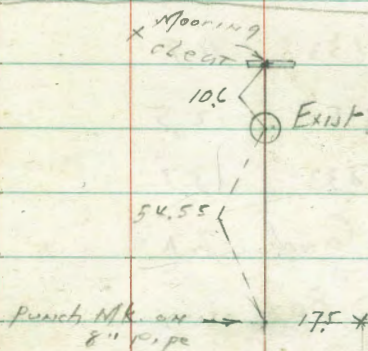 x Mooring
cleat
10.6
Exist
54.55
Punch Mk. on
8" Pipe
17.5 x